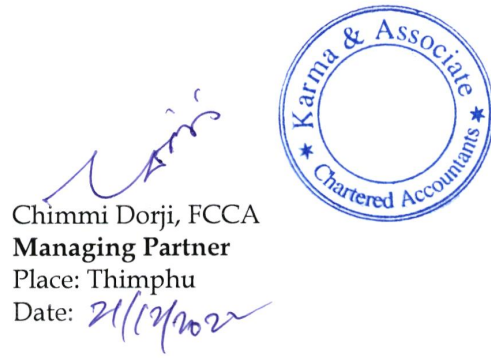 Karma & Associate
Chartered Accountants
Chimmi Dorji, FCCA
Managing Partner
Place: Thimphu
Date: 21/12/2022